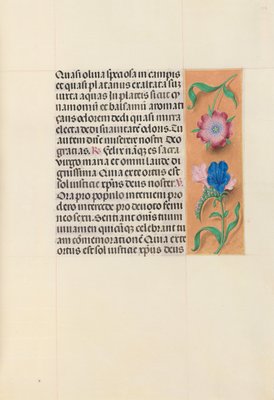 Quasi oliva speciosa in campis
et quasi platanus exaltata sū
iuxta aquas in plateis sicut cy
namomū et balsamū aromati
zans odorem dedi quasi mirra
electa dedi suavitatē odoris. Tu
autem dn̄e miserere nostri Deo
gratias. R. Felix nāqʒ es sacra
virgo maria et omni laude di
gnissima Quia ex te ortus est
sol iusticie xp̄us deus noster. V.
Ora pro populo interveni pro
clero intercede pro devoto femi
neo sexu. Sentiant om̄s tuum
iuvamen quicūqʒ celebrant tu
am cōmemorationē Quia ex te
ortus est sol iusticie xp̄us deus